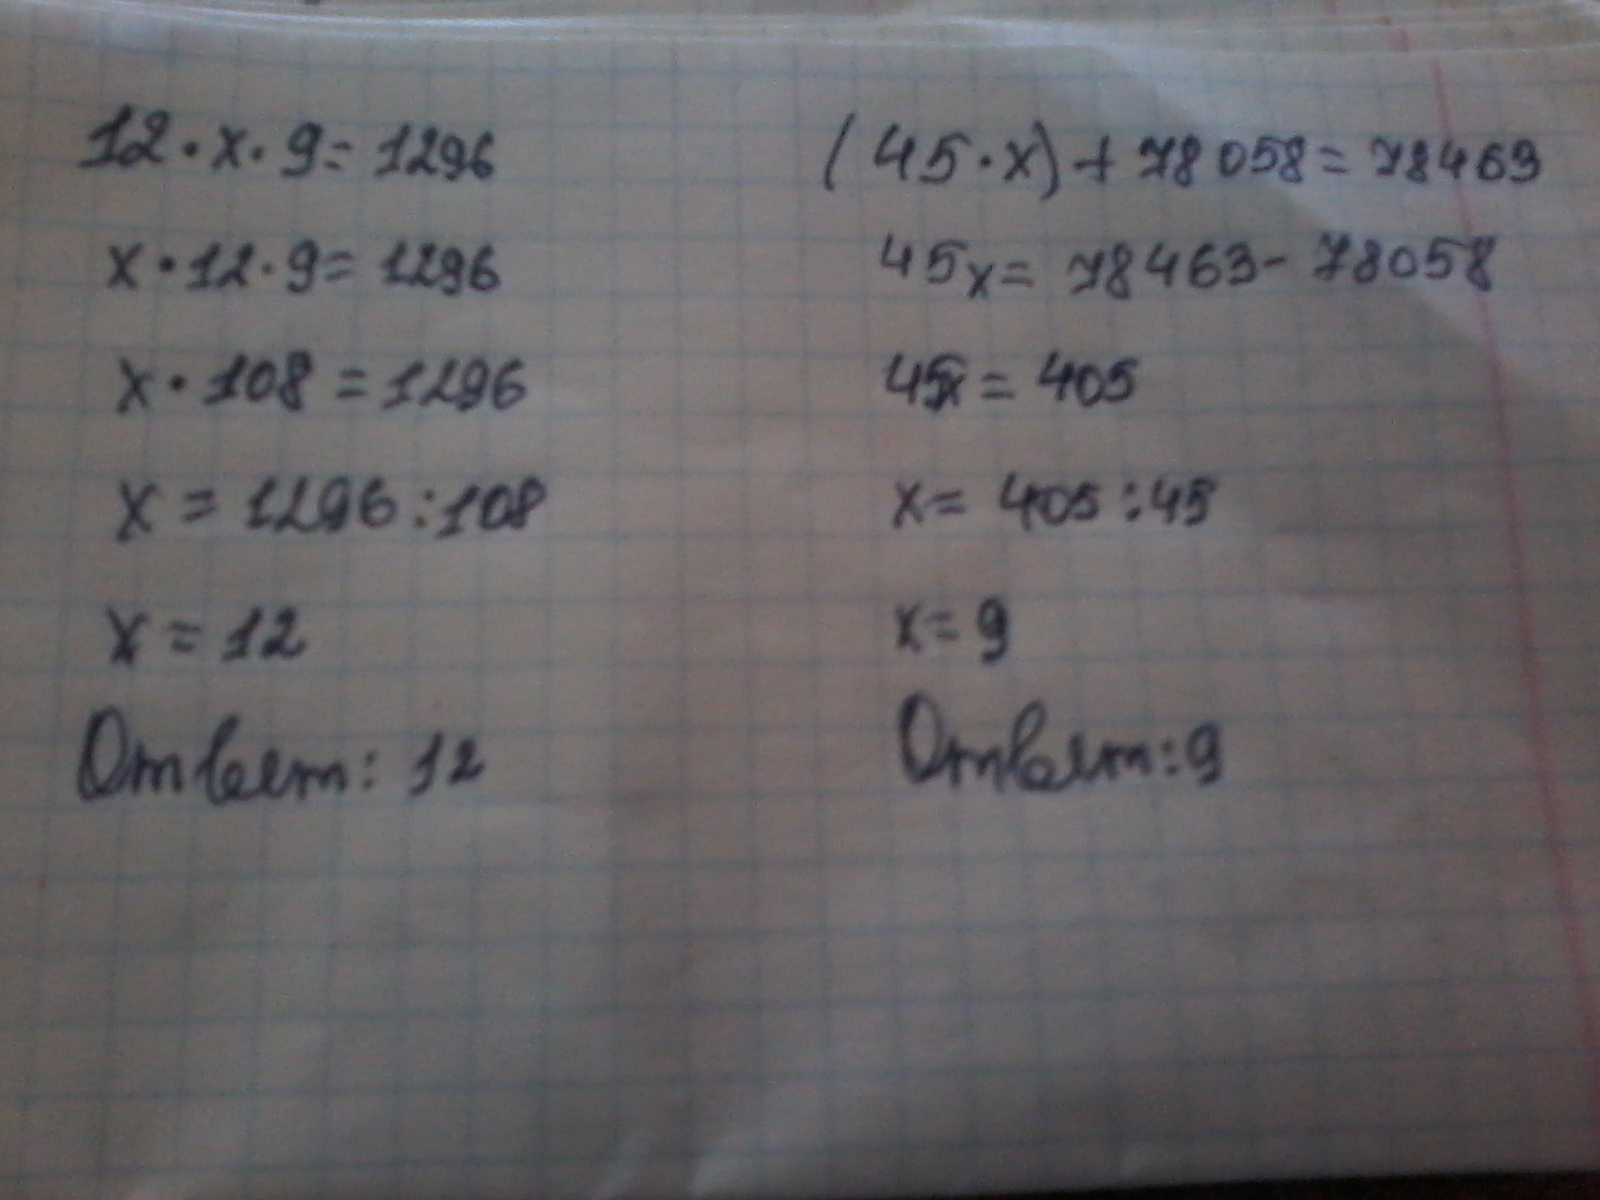 12·x·9=1296
x·12·9=1296
x·108=1296
x=1296:108
x=12
Ответ: 12
(45·x)+78058=78463
45x=78463-78058
45x=405
x=405:45
x=9
Ответ:9